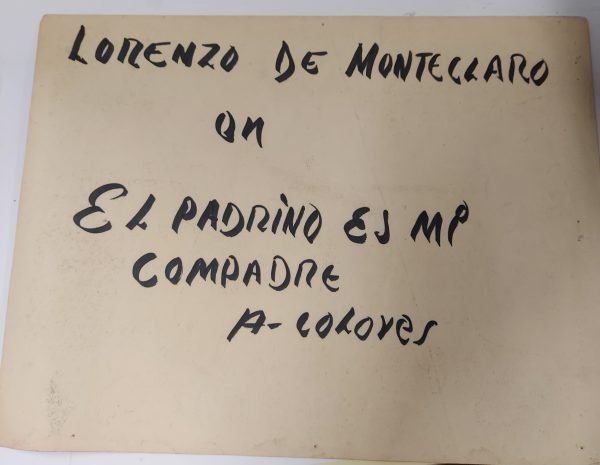 LORENZO DE MONTECLARO
en
EL PADRINO ES MI
COMPADRE
A-COLORES